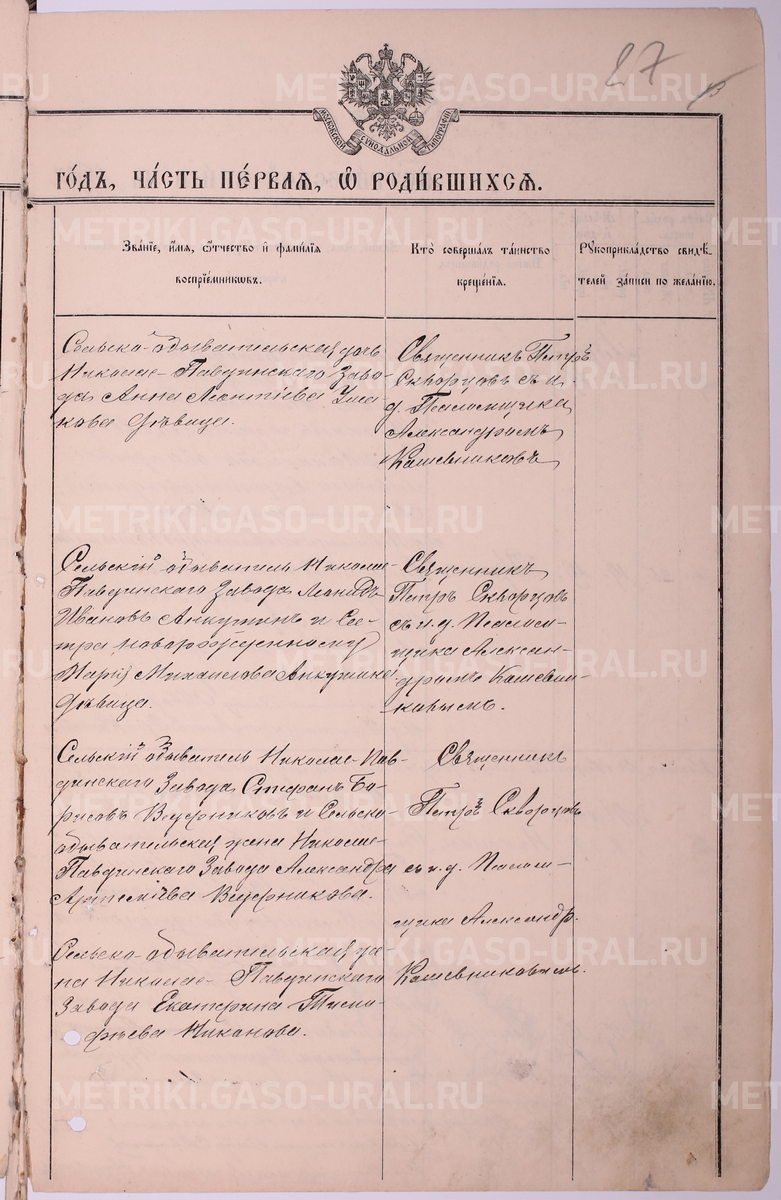 27
МОСКОВСКОЙ СѴНОДАЛЬНОЙ ТИПОГРАФІИ
ГО́ДЪ, ЧА́СТЬ ПЕ́РВАЯ, Ѽ РОДИ́ВШИХСЯ.
Зва́нїе, и҆́мя, ѻ҆́тчество и҆ фами́лїя
воспрїе́мниковъ.
Кто̀ соверша́лъ та́инство
креще́нїя.
Рꙋкоприкла́дство свидѣ́-
телей за́писи по жела́нїю.
Сельско-обывательская дочь
Николае-Павдинскаго Заво-
да Анна Леонтіева Уша-
кова дѣвица.
Священникъ Петръ
Скворцовъ съ и.
д. Псаломщика
Александромъ
Кошевниковъ
Сельскій обыватель Николае-
Павдинскаго Завода Леонидъ
Ивановъ Анкушинъ и Сес-
тра новорожденному
Марія Михаилова Анкушина
дѣвица.
Священникъ
Петръ Скворцовъ
съ и. д. Псалом-
щика Алексан-
дромъ Кошевни-
ковымъ.
Сельскій обыватель Николае-Пав-
динскаго Завода Стефанъ Бо-
рисовъ Ведерниковъ и Сельско-
обывательская жена Николае-
Павдинскаго Завода Александра
Артеміева Ведерникова.
Священникъ
Петръ Скворцовъ
съ и. д. Псалом-
щика Александр.
Кошевниковымъ.
Сельско-обывательская же-
на Николае-Павдинскаго
Завода Екатерина Тимо-
фѣева Никанова.
METRIKI.GASO-URAL.RU